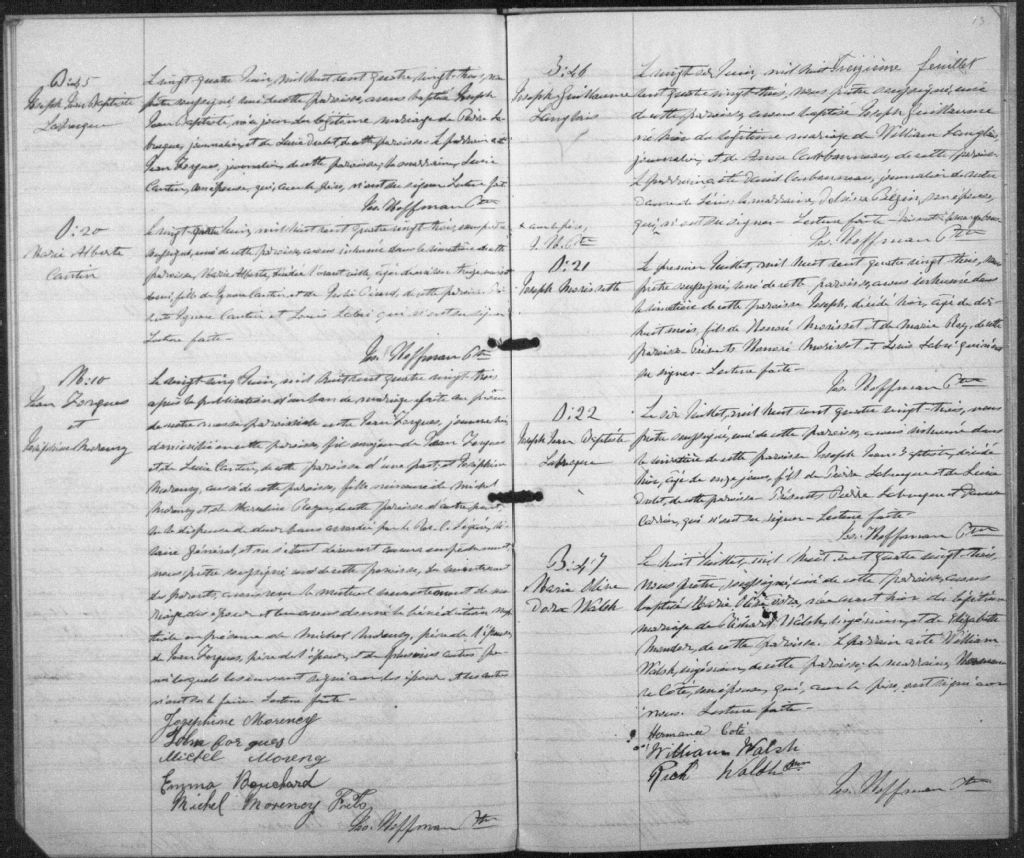 B: 45
Joseph Jean Baptiste
Labrecque
Le vingt quatre Juin, mil huit cent quatre vingt-trois, nous
prêtre soussigné, curé de cette paroisse, avons baptisé Joseph
Jean Baptiste, né ce jour du légitime mariage de Pierre La-
brecque, journalier, et de Lucie de cette paroisse. Le parrain a été
Jean Forgues, journalier de cette paroisse; la marraine, Lucie
Cantin, son épouse, qui, avec le père, n'ont su signer. Lecture faite
Jos. Hoffman Ptre
O: 20
Marie Alberte
Cantin
Le vingt quatre Juin, mil huit cent quatre vingt trois, nous prêtre
soussigné, curé de cette paroisse, avons inhumé dans le cimetière de cette
paroisse, Marie Alberte, décédée l'avant veille, âgée de
fille de Cantin et de de cette paroisse.
Cantin et Louis Labrie qui n'ont su signer
Lecture faite -
Jos. Hoffman Ptre
M: 10
Jean Forgues
et
Joséphine Morency
Le vingt cinq Juin, mil huit cent quatre vingt trois
après la publication d'un ban de mariage faite au prône
de notre messe paroissiale entre Jean Forgues, journalier,
domicilié en cette paroisse, fils majeur de Jean Forgues
et de Lucie Cantin, de cette paroisse d'une part; et Joséphine
Morency, aussi de cette paroisse, fille mineure de Michel
Morency et de de cette paroisse d'autre part;
vu la dispense de deux bans accordée par le Rev. C. Légaré, Vi-
caire Général, et ne s'étant découvert aucun empêchement,
nous prêtre soussigné curé de cette paroisse, du consentement
des parents, avons reçu le mutuel consentement de ma-
riage des époux et leur avons donné la bénédiction nup-
tiale en présence de Michel Morency, père de l'épouse,
de Jean Forgues, père de l'époux, et de plusieurs autres par-
mi lesquels les suivants signé avec les époux et les autres
n'ont su le faire. Lecture faite -
Josephine Morency
John forgues
Michel Moreng
Emma Bouchard
Michel Morency Fils
Jos. Hoffman Ptre
13
Treizième feuillet
B: 46
Joseph Guillaume
Langlois
Le vingt six Juin, mil huit
cent quatre vingt-trois, nous prêtre soussigné, curé
de cette paroisse, avons baptisé Joseph Guillaume
né hier du légitime mariage de William Langlois
journalier, et de Anna Carbonneau, de cette paroisse.
Le parrain a été David Carbonneau, journalier de Notre
Dame de Lévis; la marraine, son épouse,
qui, n'ont su signer - Lecture faite -
Jos. Hoffman Ptre
x avec le père,
J. H. Ptre
O: 21
Joseph Morissette
Le premier Juillet, mil huit cent quatre vingt trois, nous
prêtre soussigné, curé de cette paroisse, avons inhumé dans
le cimetière de cette paroisse Joseph, décédé hier, âgé de dix-
huit mois, fils de Honoré Morisset et de Marie Roy, de cette
paroisse. Présents Honoré Morisset et Louis Labrie qui n'ont
su signer - Lecture faite -
Jos. Hoffman Ptre
O: 22
Joseph Jean Baptiste
Labrecque
Le six Juillet, mil huit cent quatre vingt-trois, nous
prêtre soussigné, curé de cette paroisse, avons inhumé dans
le cimetière de cette paroisse Joseph Jean Baptiste, décédé
hier, âgé de onze jours, fils de Pierre Labrecque et de Lucie
de cette paroisse. Présents Pierre Labrecque et
Carrier, qui n'ont su signer - Lecture faite
Jos. Hoffman Ptre
B: 47
Marie Olive
Dora Walsh
Le huit Juillet, mil huit cent quatre vingt trois,
nous prêtre, soussigné, curé de cette paroisse, avons
baptisé Marie Olive Dora, née avant hier du légitime
mariage de Richard Walsh, ingénieur, et de Elizabeth
de cette paroisse. Le parrain a été William
Walsh, ingénieur, de cette paroisse; la marraine, Herman-
ce Coté, son épouse, qui, avec le père, ont signé avec
nous. Lecture faite -
Hermance Coté
William Walsh
Rich Walsh
Jos. Hoffman Ptre